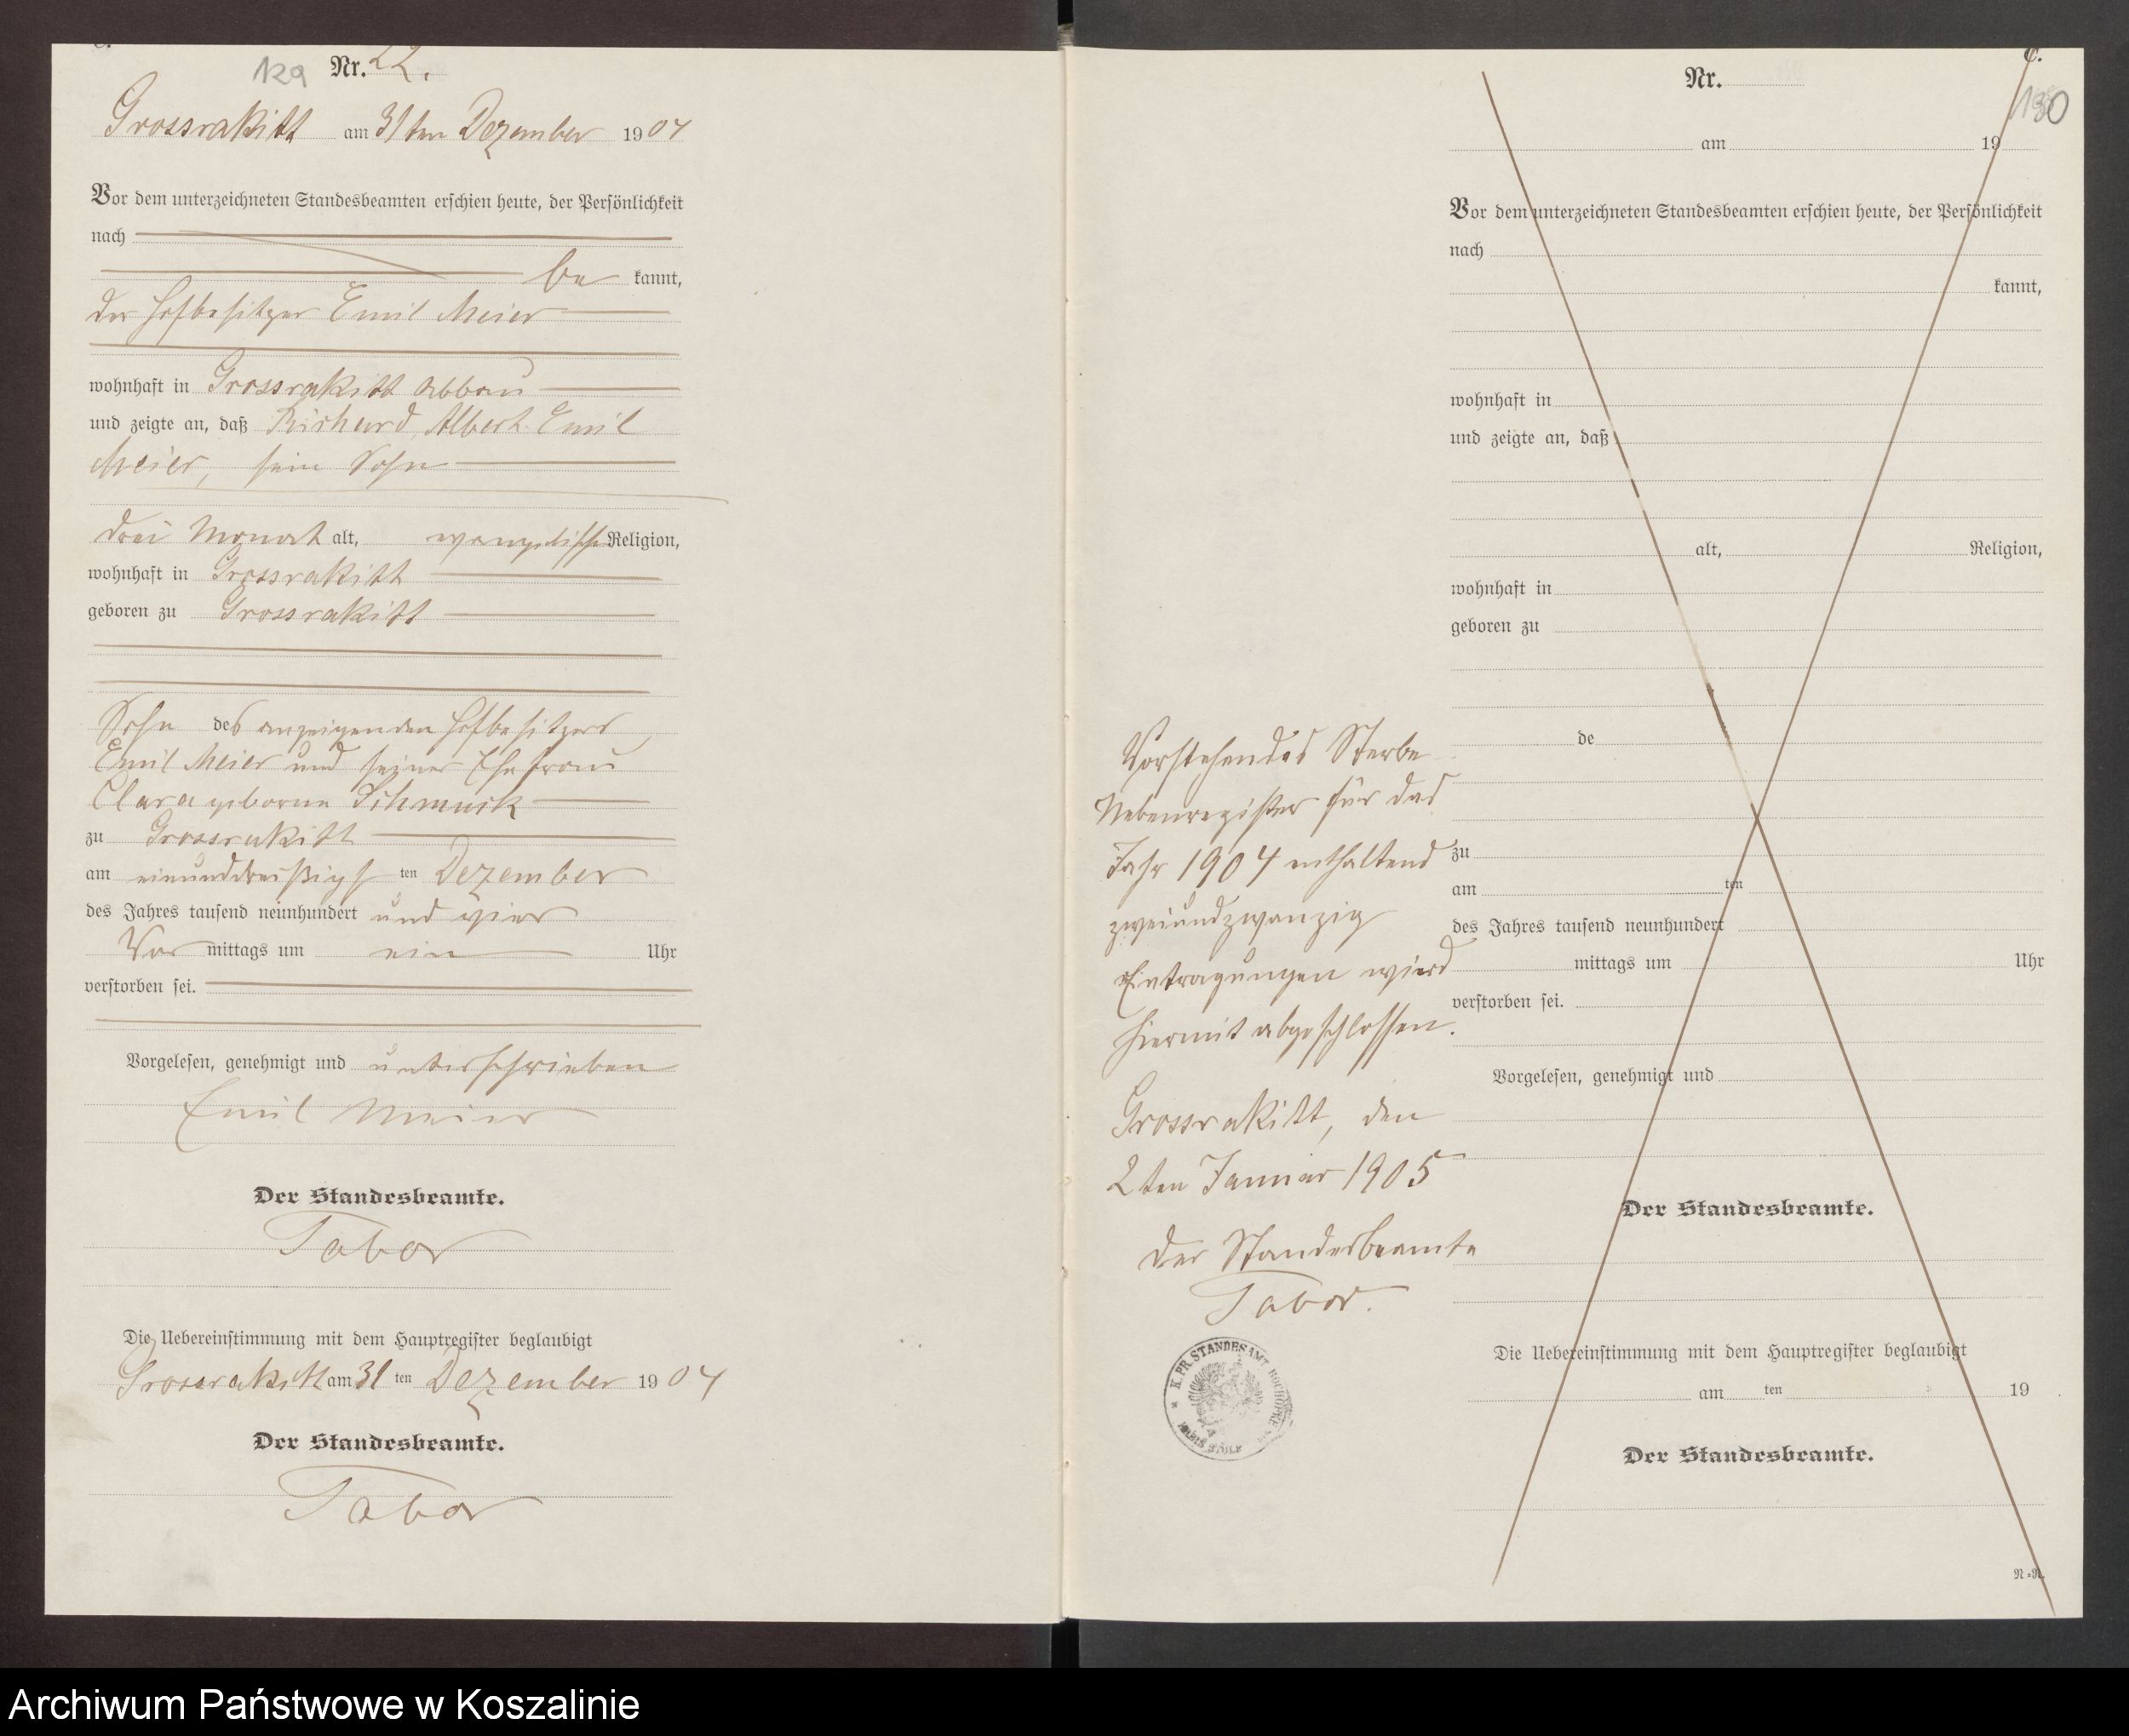 C.
129 Nr. 22.
Grossrakitt am 31ten Dezember 1904
Vor dem unterzeichneten Standesbeamten erschien heute, der Persönlichkeit
nach
be kannt,
der Hofbesitzer Emil Meier
wohnhaft in Grossrakitt Abbau
und zeigte an, daß Richard, Albert Emil
Meier, sein Sohn
drei Monat alt, evangelischer Religion,
wohnhaft in Grossrakitt
geboren zu Grossrakitt
Sohn des anzeigenden Hofbesitzers
Emil Meier und seiner Ehefrau
Clara geborne Schmuck
zu Grossrakitt
am einunddreißigsten Dezember
des Jahres tausend neunhundert und vier
Vor mittags um ein Uhr
verstorben sei.
Vorgelesen, genehmigt und unterschrieben
Emil Meier
Der Standesbeamte.
Tabor
Die Uebereinstimmung mit dem Hauptregister beglaubigt
Grossrakitt am 31 ten Dezember 1904
Der Standesbeamte.
Tabor
Vorstehendes Sterbe
Nebenregister für das
Jahr 1904 enthaltend
zweiundzwanzig
Eintragungen wird
hiermit abgeschlossen.
Grossrakitt, den
2ten Januar 1905
Der Standesbeamte
Tabor.
K. PR. STANDESAMT
C.
130
Nr.
am 19
Vor dem unterzeichneten Standesbeamten erschien heute, der Persönlichkeit
nach
kannt,
wohnhaft in
und zeigte an, daß
alt, Religion,
wohnhaft in
geboren zu
de
zu
am ten
des Jahres tausend neunhundert
mittags um Uhr
verstorben sei.
Vorgelesen, genehmigt und
Der Standesbeamte.
Die Uebereinstimmung mit dem Hauptregister beglaubigt
am ten 19
Der Standesbeamte.
Archiwum Państwowe w Koszalinie